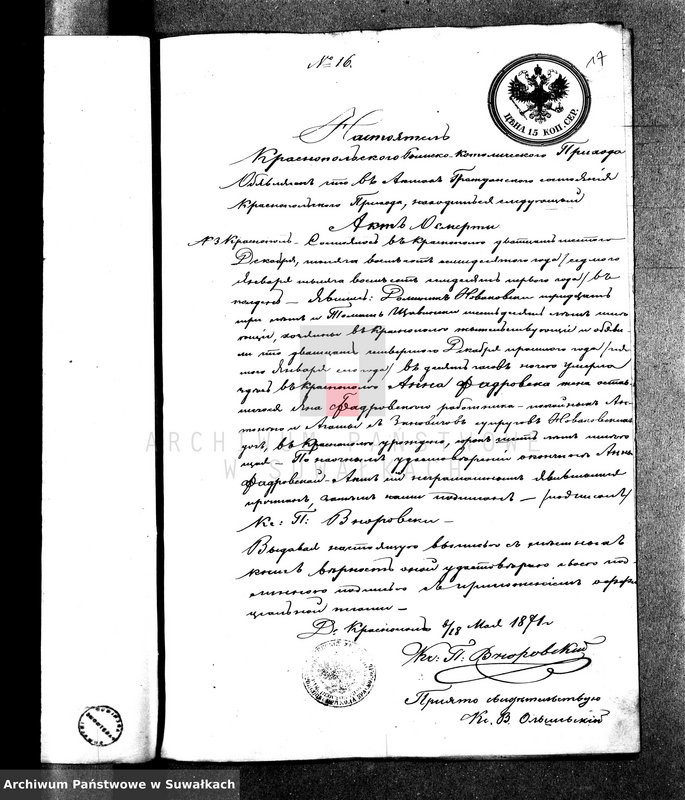 № 16.
17
ЦѢНА 15 КОП. СЕР.
Настоятель
Краснопольского Римско-Католического Прихода
Объявляетъ что въ Актахъ Гражданского состоянія
Краснопольского Прихода, находится слѣдующій
Актъ Смерти
№ 3 Краснополь. Состоялось въ Краснополѣ двадцать шестого
Декабря, тысяча восемьсотъ семдесятого года / седмого
Января тысяча восемьсотъ семдесятъ первого года / въ
полдень — Явились: Доминикъ Новаковски тридцать
три лѣтъ и Томашъ лѣтъ имѣ-
ющіе, хозяины въ Краснополѣ жительствующіе и объяви-
ли что двадцать четвертого Декабря прошлого года / пя-
того Января сего года / въ девять часовъ ночи умерла
здѣсь въ Краснополѣ Анна Фадровска жена остав-
шагося Яна Фадровского работника — покойныхъ Ан-
тонего и Агаты изъ супруговъ Новаковскихъ
дочь, въ Краснополѣ урождена, лѣтъ имѣю-
щая. По настояльномъ удостовѣреніи о кончинѣ Анны
Фадровской — Актъ сей неграмотнымъ явившимся
прочтенъ, нами подписанъ — / подписалъ /
Кс: П: Внуровски —
Выдавая настоящую выпись съ подлинникомъ
вѣрность оной удостовѣряю своего под-
линного подписью съ приложеніемъ оффи-
ціальной печати —
Д. Краснополь 6/18 Мая 1871 г
Кс: П: Внуровскій
Принято свидѣтельствую
Кс. В. Ольшыскій
ARCHIWUM PAŃSTWOWE
W SUWAŁKACH
Archiwum Państwowe w Suwałkach